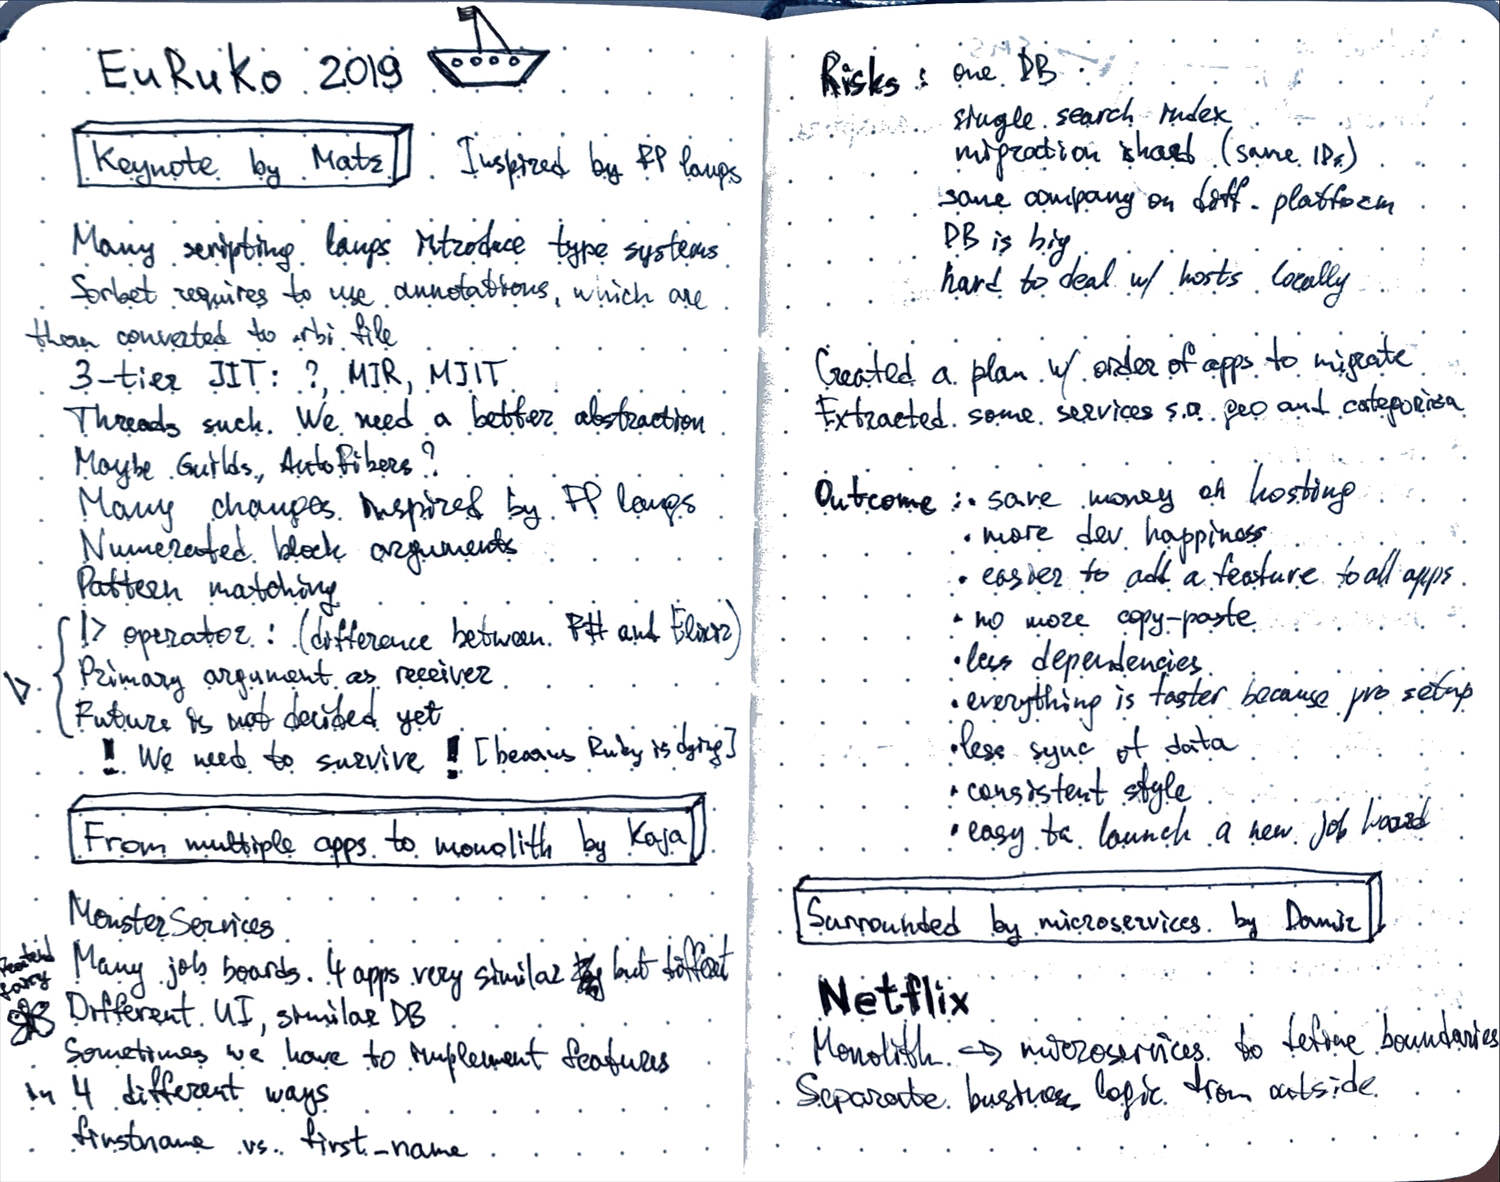 EuRuKo 2019
Keynote by Matz
Inspired by FP langs
Many scripting langs introduce type systems
Sorbet requires to use annotations, which are
then converted to .rbi file
3-tier JIT: ?, MIR, MJIT
Threads such. We need a better abstraction
Maybe Guilds, AutoFibers?
Many changes inspired by FP langs
Numerated block arguments
Pattern matching
|> operator : (difference between F# and Elixir)
Primary argument as receiver
Future is not decided yet
! We need to survive ! [becaus Ruby is dying]
From multiple apps to monolith by Kaja
MonsterServices
Many job boards. 4 apps very similar but different
Different UI, similar DB
Sometimes we have to implement features
in 4 different ways
firstname vs. first_name
Risks: one DB
single search index
migration is hard (same IDs)
same company on diff. platform
DB is big
hard to deal w/ hosts locally
Created a plan w/ order of apps to migrate
Extracted some services s.a. geo and
Outcome: • save money on hosting
• more dev happiness
• easier to add a feature to all apps
• no more copy-paste
• less dependencies
• everything is faster because pro setup
• less sync of data
• consistent style
• easy to launch a new job board
Surrounded by microservices by Damir
Netflix
Monolith => microservices to define boundaries
Separate business logic from outside